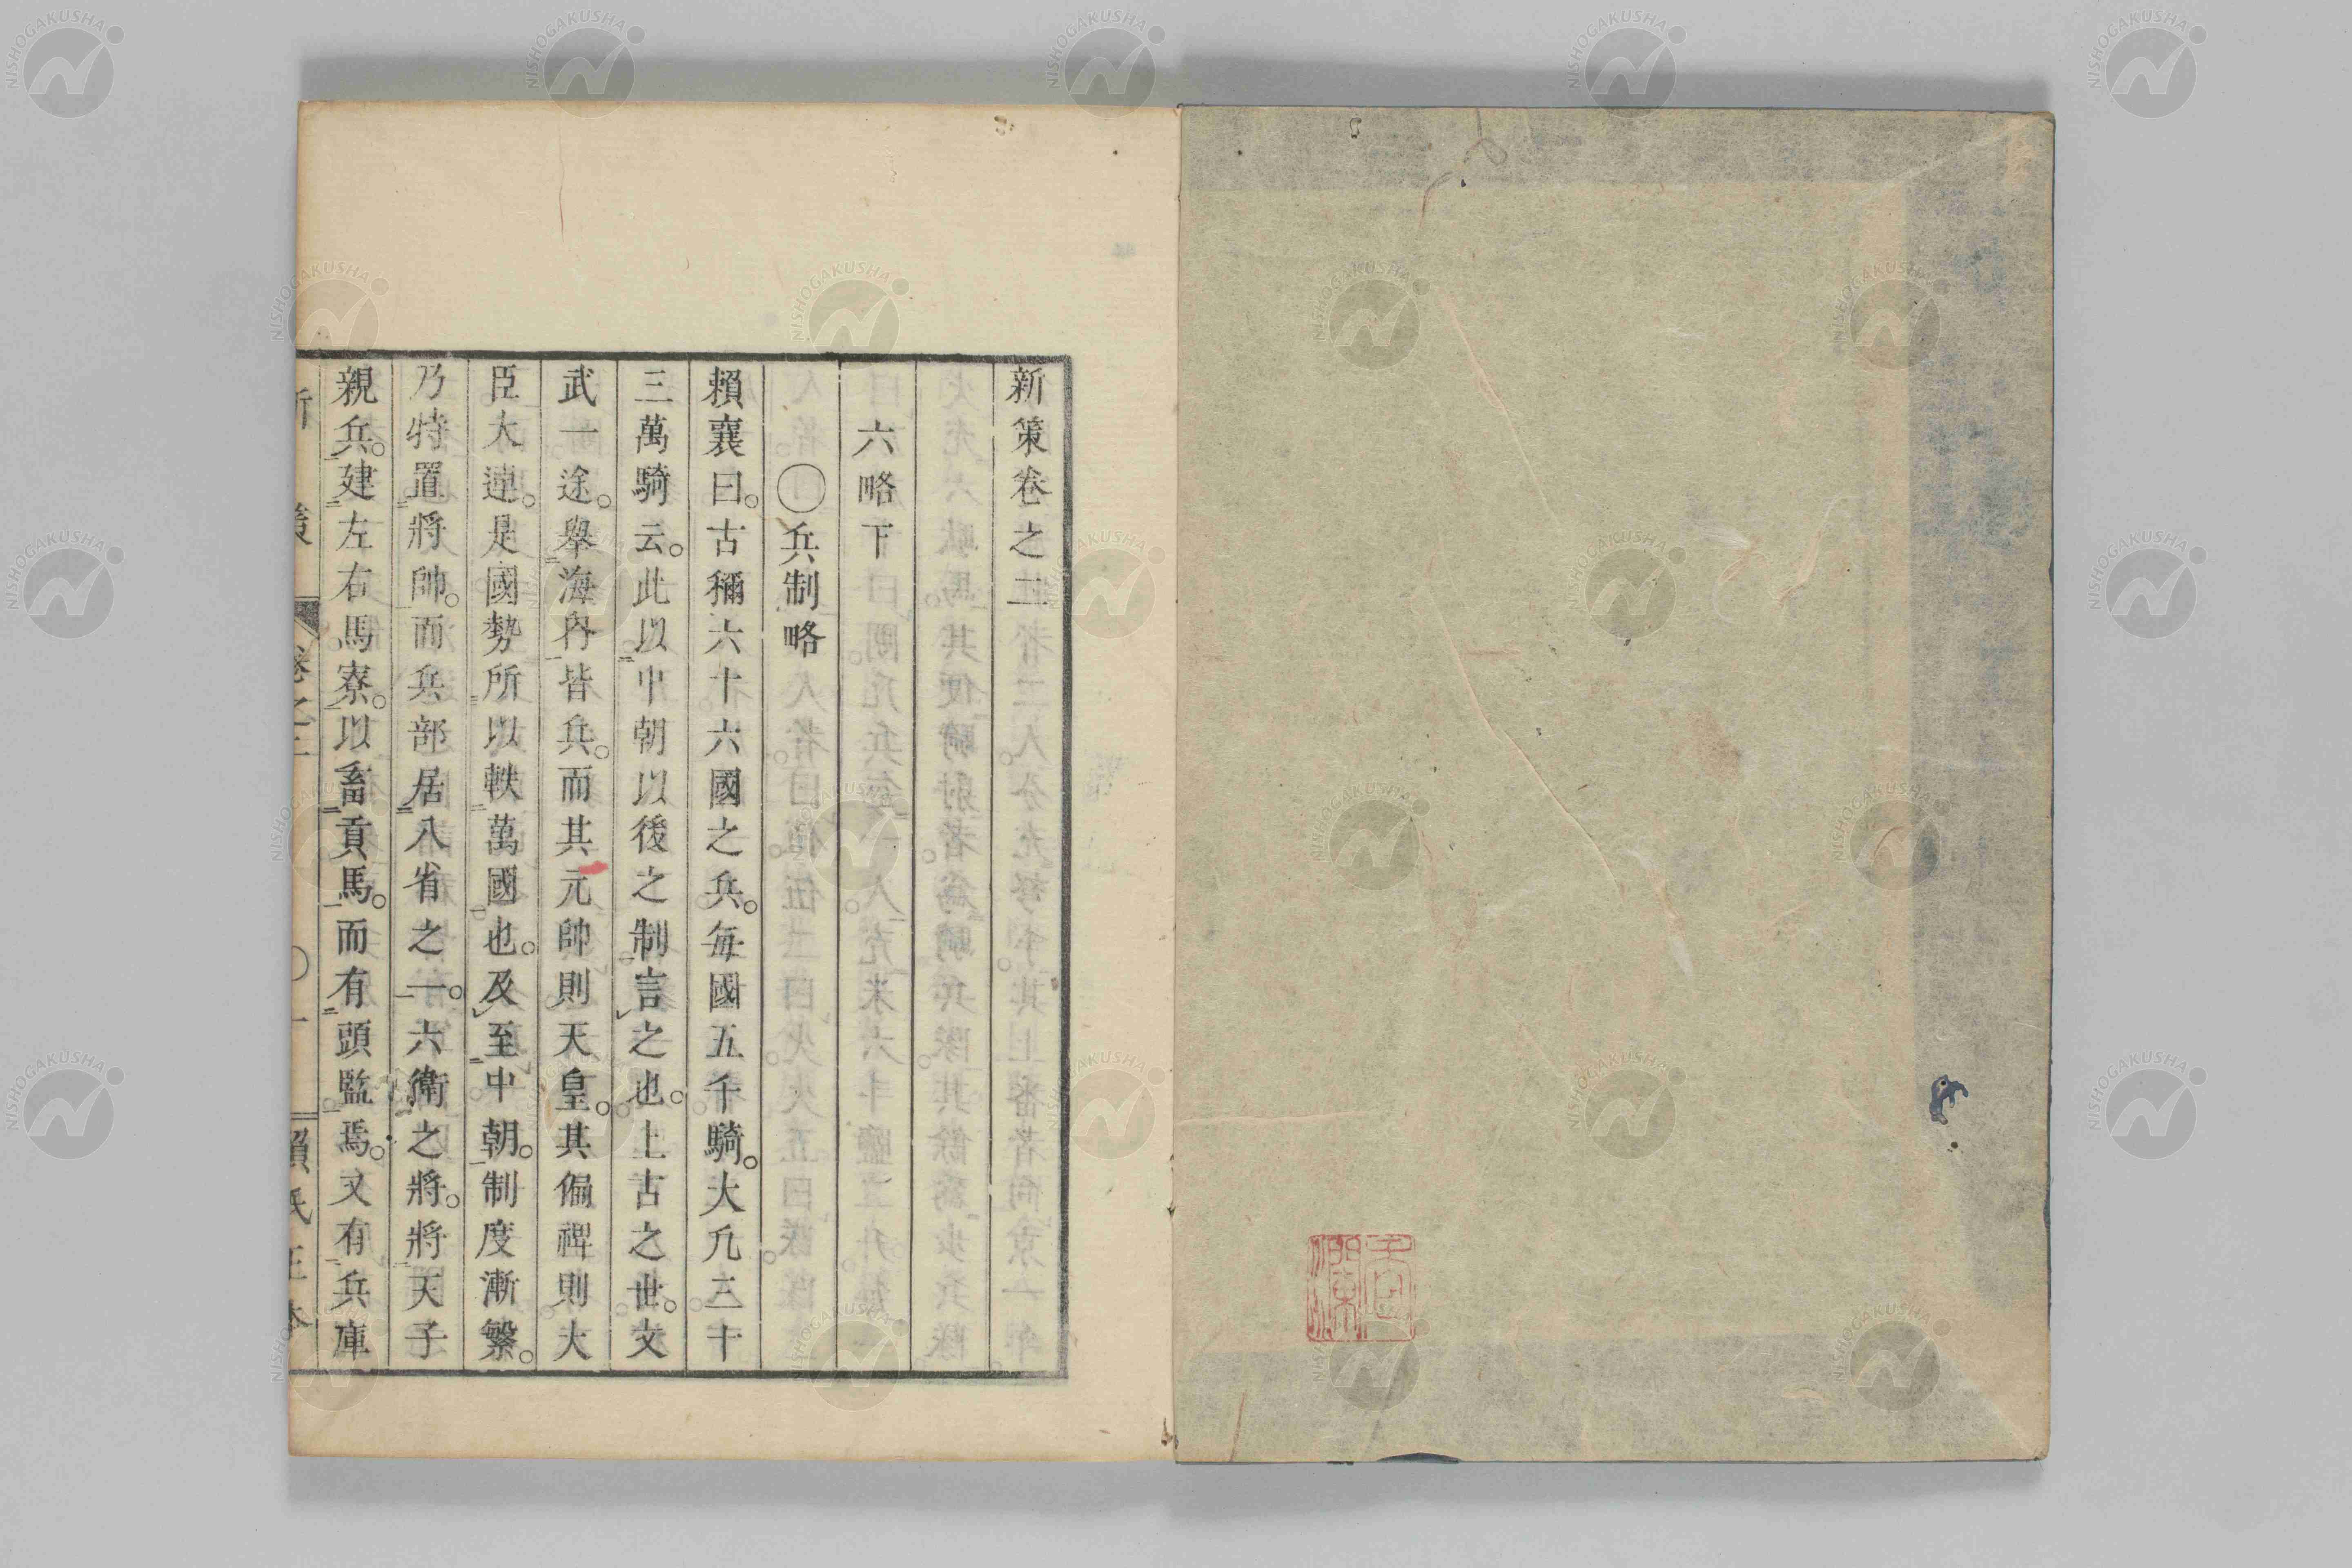 新策卷之二
六略下
〇兵制略
賴襄曰。古稱六十六國之兵。每國五千騎。大凡三十
三萬騎云。此以中朝以後之制言之也。上古之世。文
武一途。舉海內皆兵。而其元帥則天皇。其偏裨則大
臣大連。是國勢所以軼萬國也。及至中朝。制度漸繁。
乃特置將帥。而兵部居八省之一。六衛之將。將天子
親兵。建左右馬寮。以畜貢馬。而有頭監焉。又有兵庫